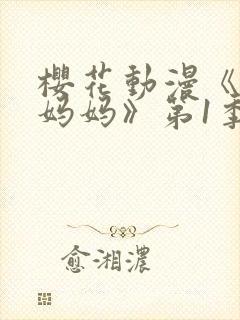 櫻花動漫《
妈妈》第1季
愈湘濃